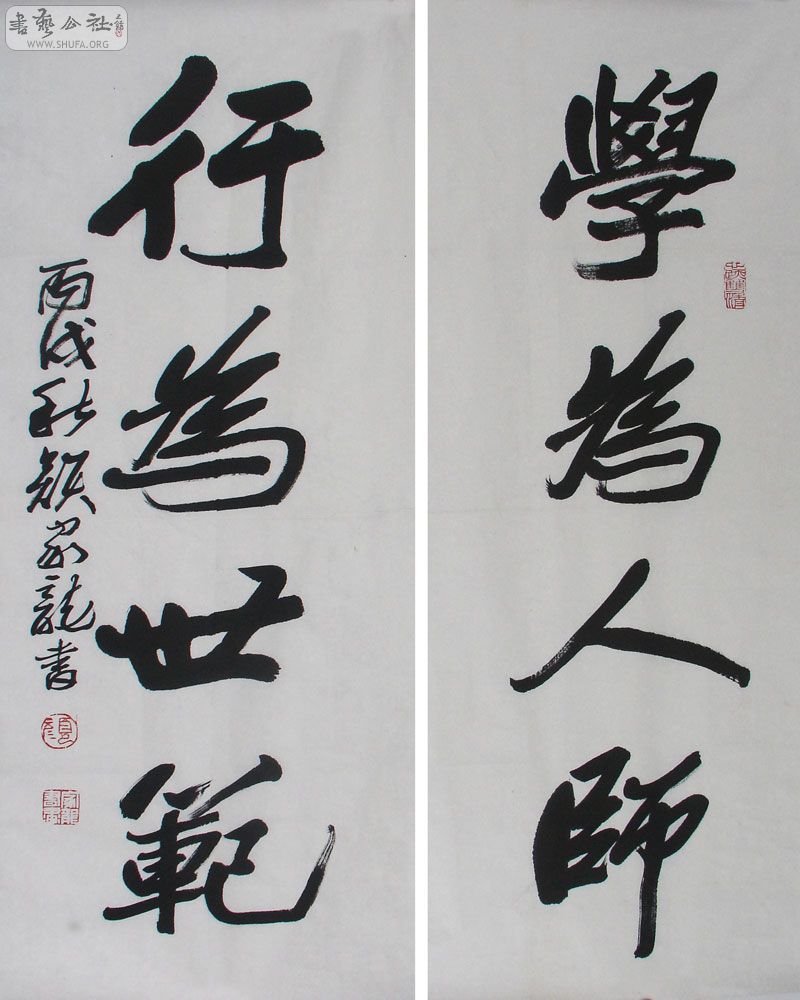 學為人師
行為世範
丙戌秋顏家龍書
書藝公社
WWW.SHUFA.ORG